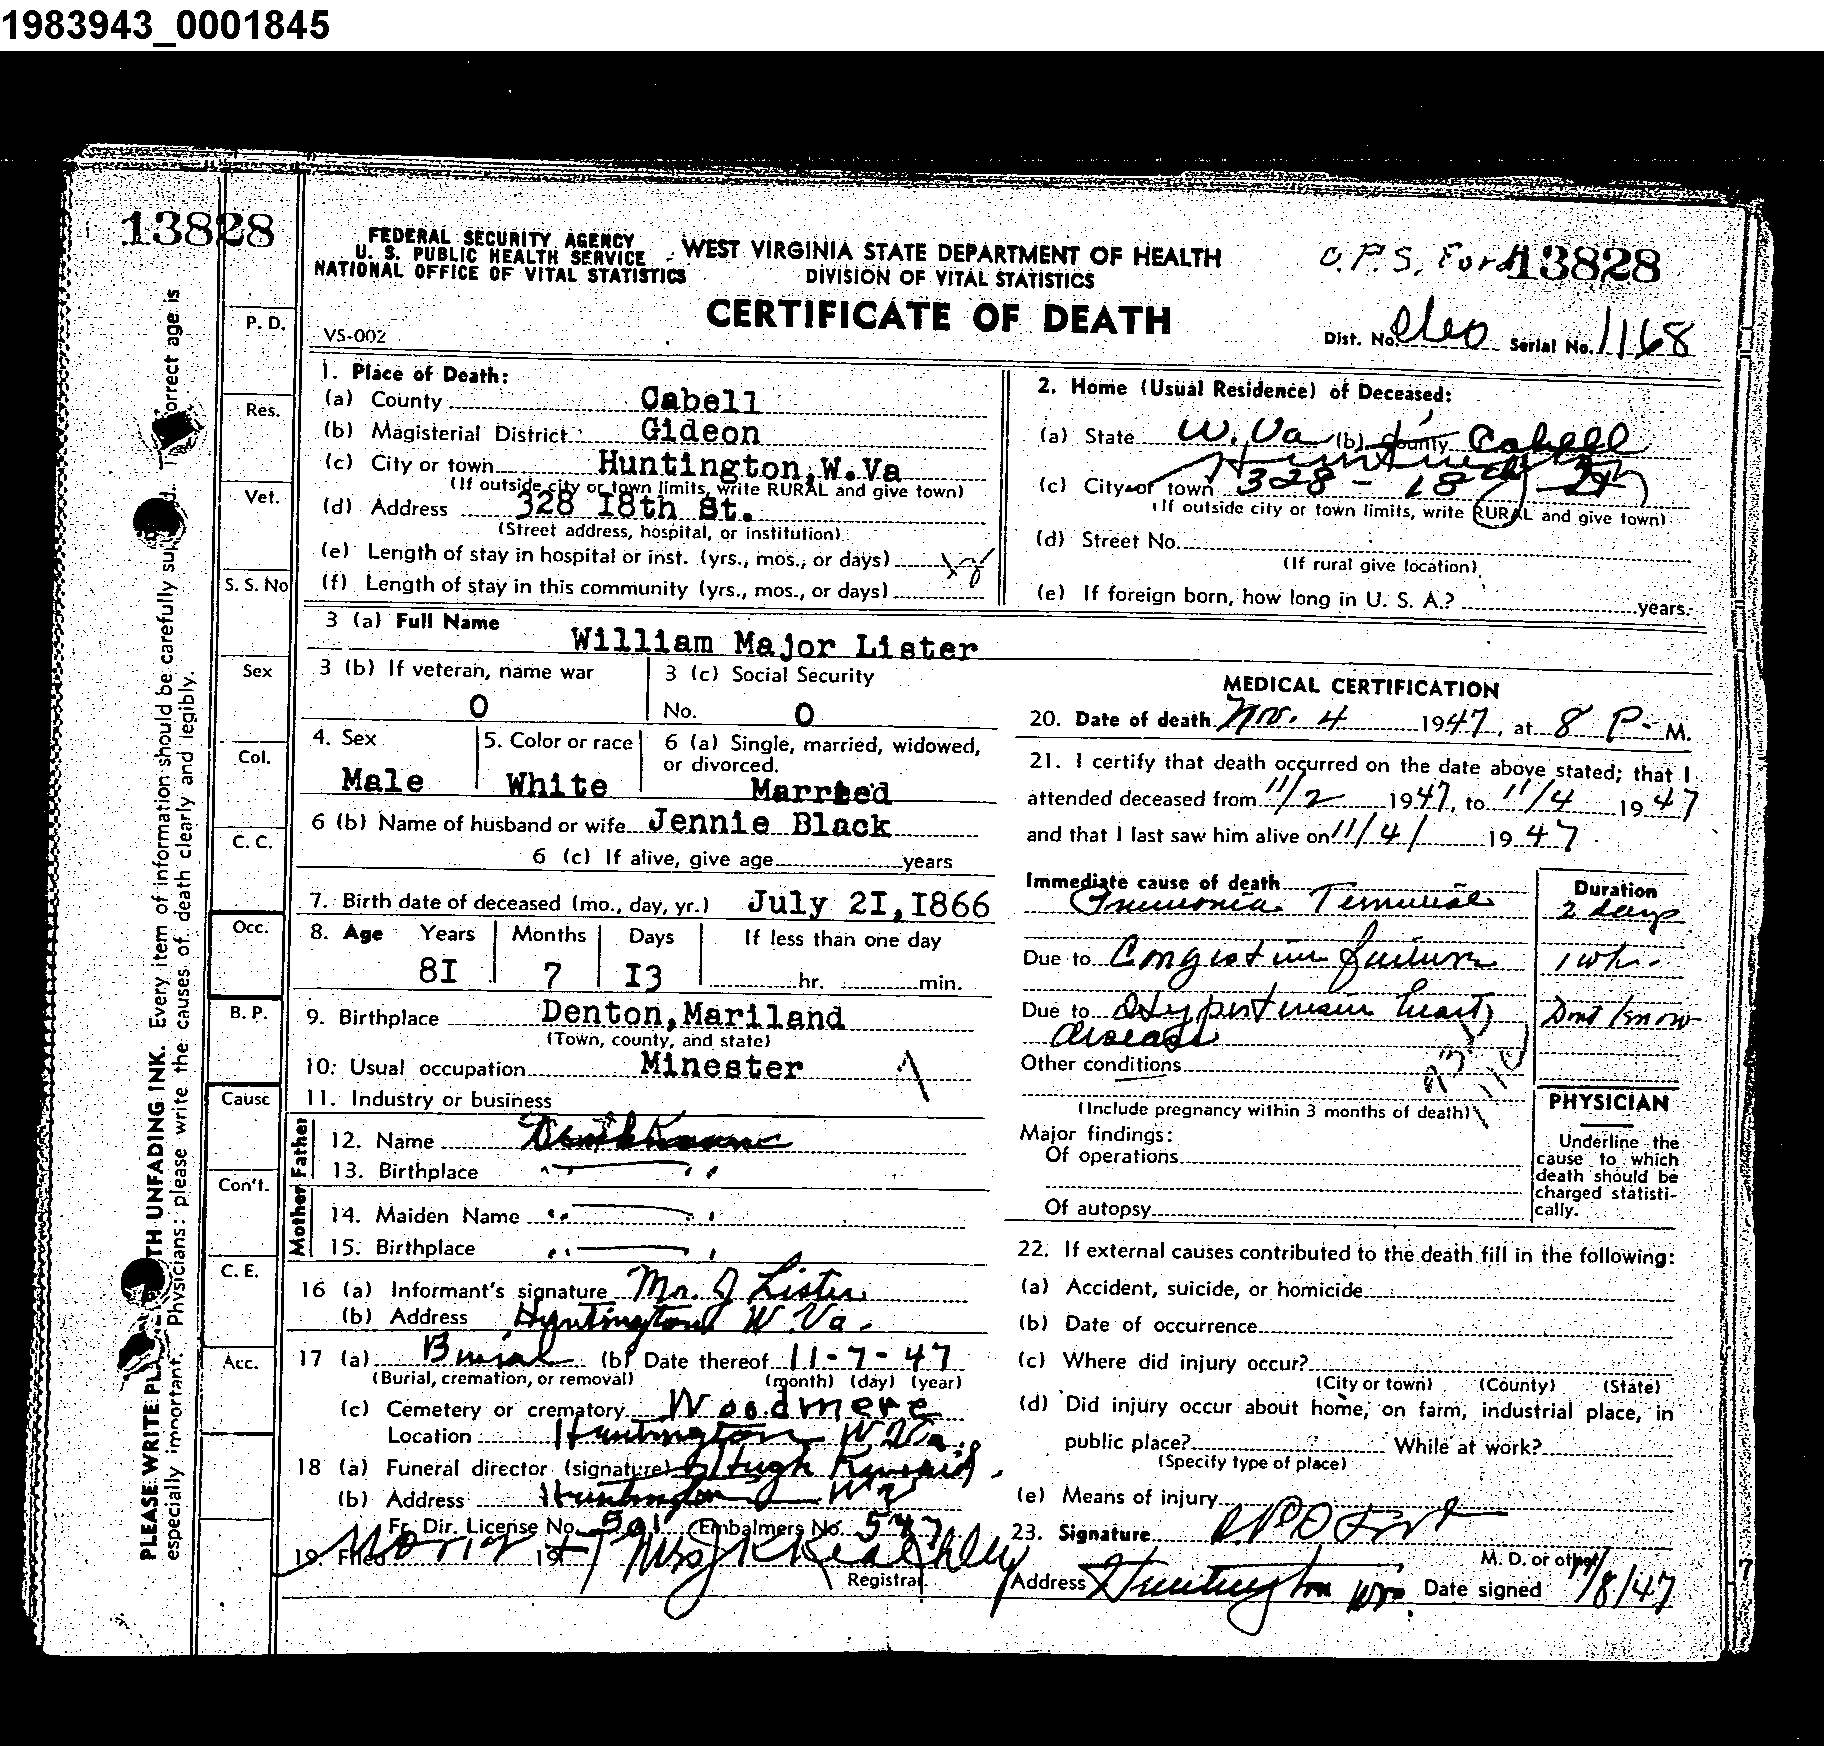 1983943_0001845
13828
FEDERAL SECURITY AGENCY
U. S. PUBLIC HEALTH SERVICE
NATIONAL OFFICE OF VITAL STATISTICS
WEST VIRGINIA STATE DEPARTMENT OF HEALTH
DIVISION OF VITAL STATISTICS
O.P.S. Ford 13828
CERTIFICATE OF DEATH
VS-002
Dist. No. Serial No. 1168
1. Place of Death:
(a) County Cabell
(b) Magisterial District Gideon
(c) City or town Huntington, W.Va
(If outside city or town limits, write RURAL and give town)
(d) Address 328 I8th St.
(Street address, hospital, or institution)
(e) Length of stay in hospital or inst. (yrs., mos., or days)
(f) Length of stay in this community (yrs., mos., or days)
2. Home (Usual Residence) of Deceased:
(a) State W. Va (b) County Cabell
(c) City or town 328 - 18
(If outside city or town limits, write RURAL and give town)
(d) Street No.
(If rural give location)
(e) If foreign born, how long in U. S. A.? years.
3 (a) Full Name William Major Lister
3 (b) If veteran, name war O
3 (c) Social Security No. O
4. Sex Male
5. Color or race White
6 (a) Single, married, widowed, or divorced. Married
6 (b) Name of husband or wife Jennie Black
6 (c) If alive, give age years
7. Birth date of deceased (mo., day, yr.) July 2I, I866
8. Age Years Months Days If less than one day
8I 7 I3 hr. min.
9. Birthplace Denton, Mariland
(Town, county, and state)
10. Usual occupation Minester
11. Industry or business
Father
12. Name Dont Know
13. Birthplace " — "
Mother
14. Maiden Name " — "
15. Birthplace " — "
16 (a) Informant's signature Mrs. J Lister
(b) Address Huntington W. Va.
17 (a) Burial (b) Date thereof 11-7-47
(Burial, cremation, or removal) (month) (day) (year)
(c) Cemetery or crematory Woodmere
Location Huntington W Va.
18 (a) Funeral director (signature) Hugh
(b) Address Huntington W Va
Fr. Dir. License No. Embalmers No. 547
19. Filed 19 47 Mrs J K Keathley
Registrar.
MEDICAL CERTIFICATION
20. Date of death Nov. 4 1947, at 8 P- M.
21. I certify that death occurred on the date above stated; that I
attended deceased from 11/2 1947, to 11/4 1947
and that I last saw him alive on 11/4/ 1947.
Immediate cause of death
Pneumonia Terminal
Duration
2 days
Due to Congestive failure 1 wk.
Due to Hypertensive heart Dont know
disease
Other conditions
(Include pregnancy within 3 months of death)
Major findings:
Of operations
Of autopsy
PHYSICIAN
Underline the
cause to which
death should be
charged statisti-
cally.
22. If external causes contributed to the death fill in the following:
(a) Accident, suicide, or homicide
(b) Date of occurrence
(c) Where did injury occur?
(City or town) (County) (State)
(d) Did injury occur about home, on farm, industrial place, in
public place? While at work?
(Specify type of place)
(e) Means of injury
23. Signature
M. D. or other
Address Huntington W Va. Date signed 11/8/47
P. D.
Res.
Vet.
S. S. No
Sex
Col.
C. C.
Occ.
B. P.
Cause
Con't.
C. E.
Acc.
PLEASE WRITE UNFADING INK. Every item of information should be carefully
especially important. Physicians: please write the causes of death clearly and legibly.